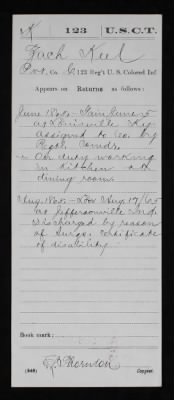 K | 123 | U.S.C.T.
Zach Keel
Pvt, Co. G, 123 Reg't U. S. Colored Inf
Appears on Returns as follows:
June 1865 - Gain June 5
at Louisville Ky
assigned to Co. by
Regtl. Comdr.
On duty working
in Kitchen and
dining room.
Aug. 1865 - Loss Aug 17/65
at Jeffersonville Ind.
Discharged by reason
of Surgs. Certificate
of disability
Book mark:
Thornton
(546) Copyist.